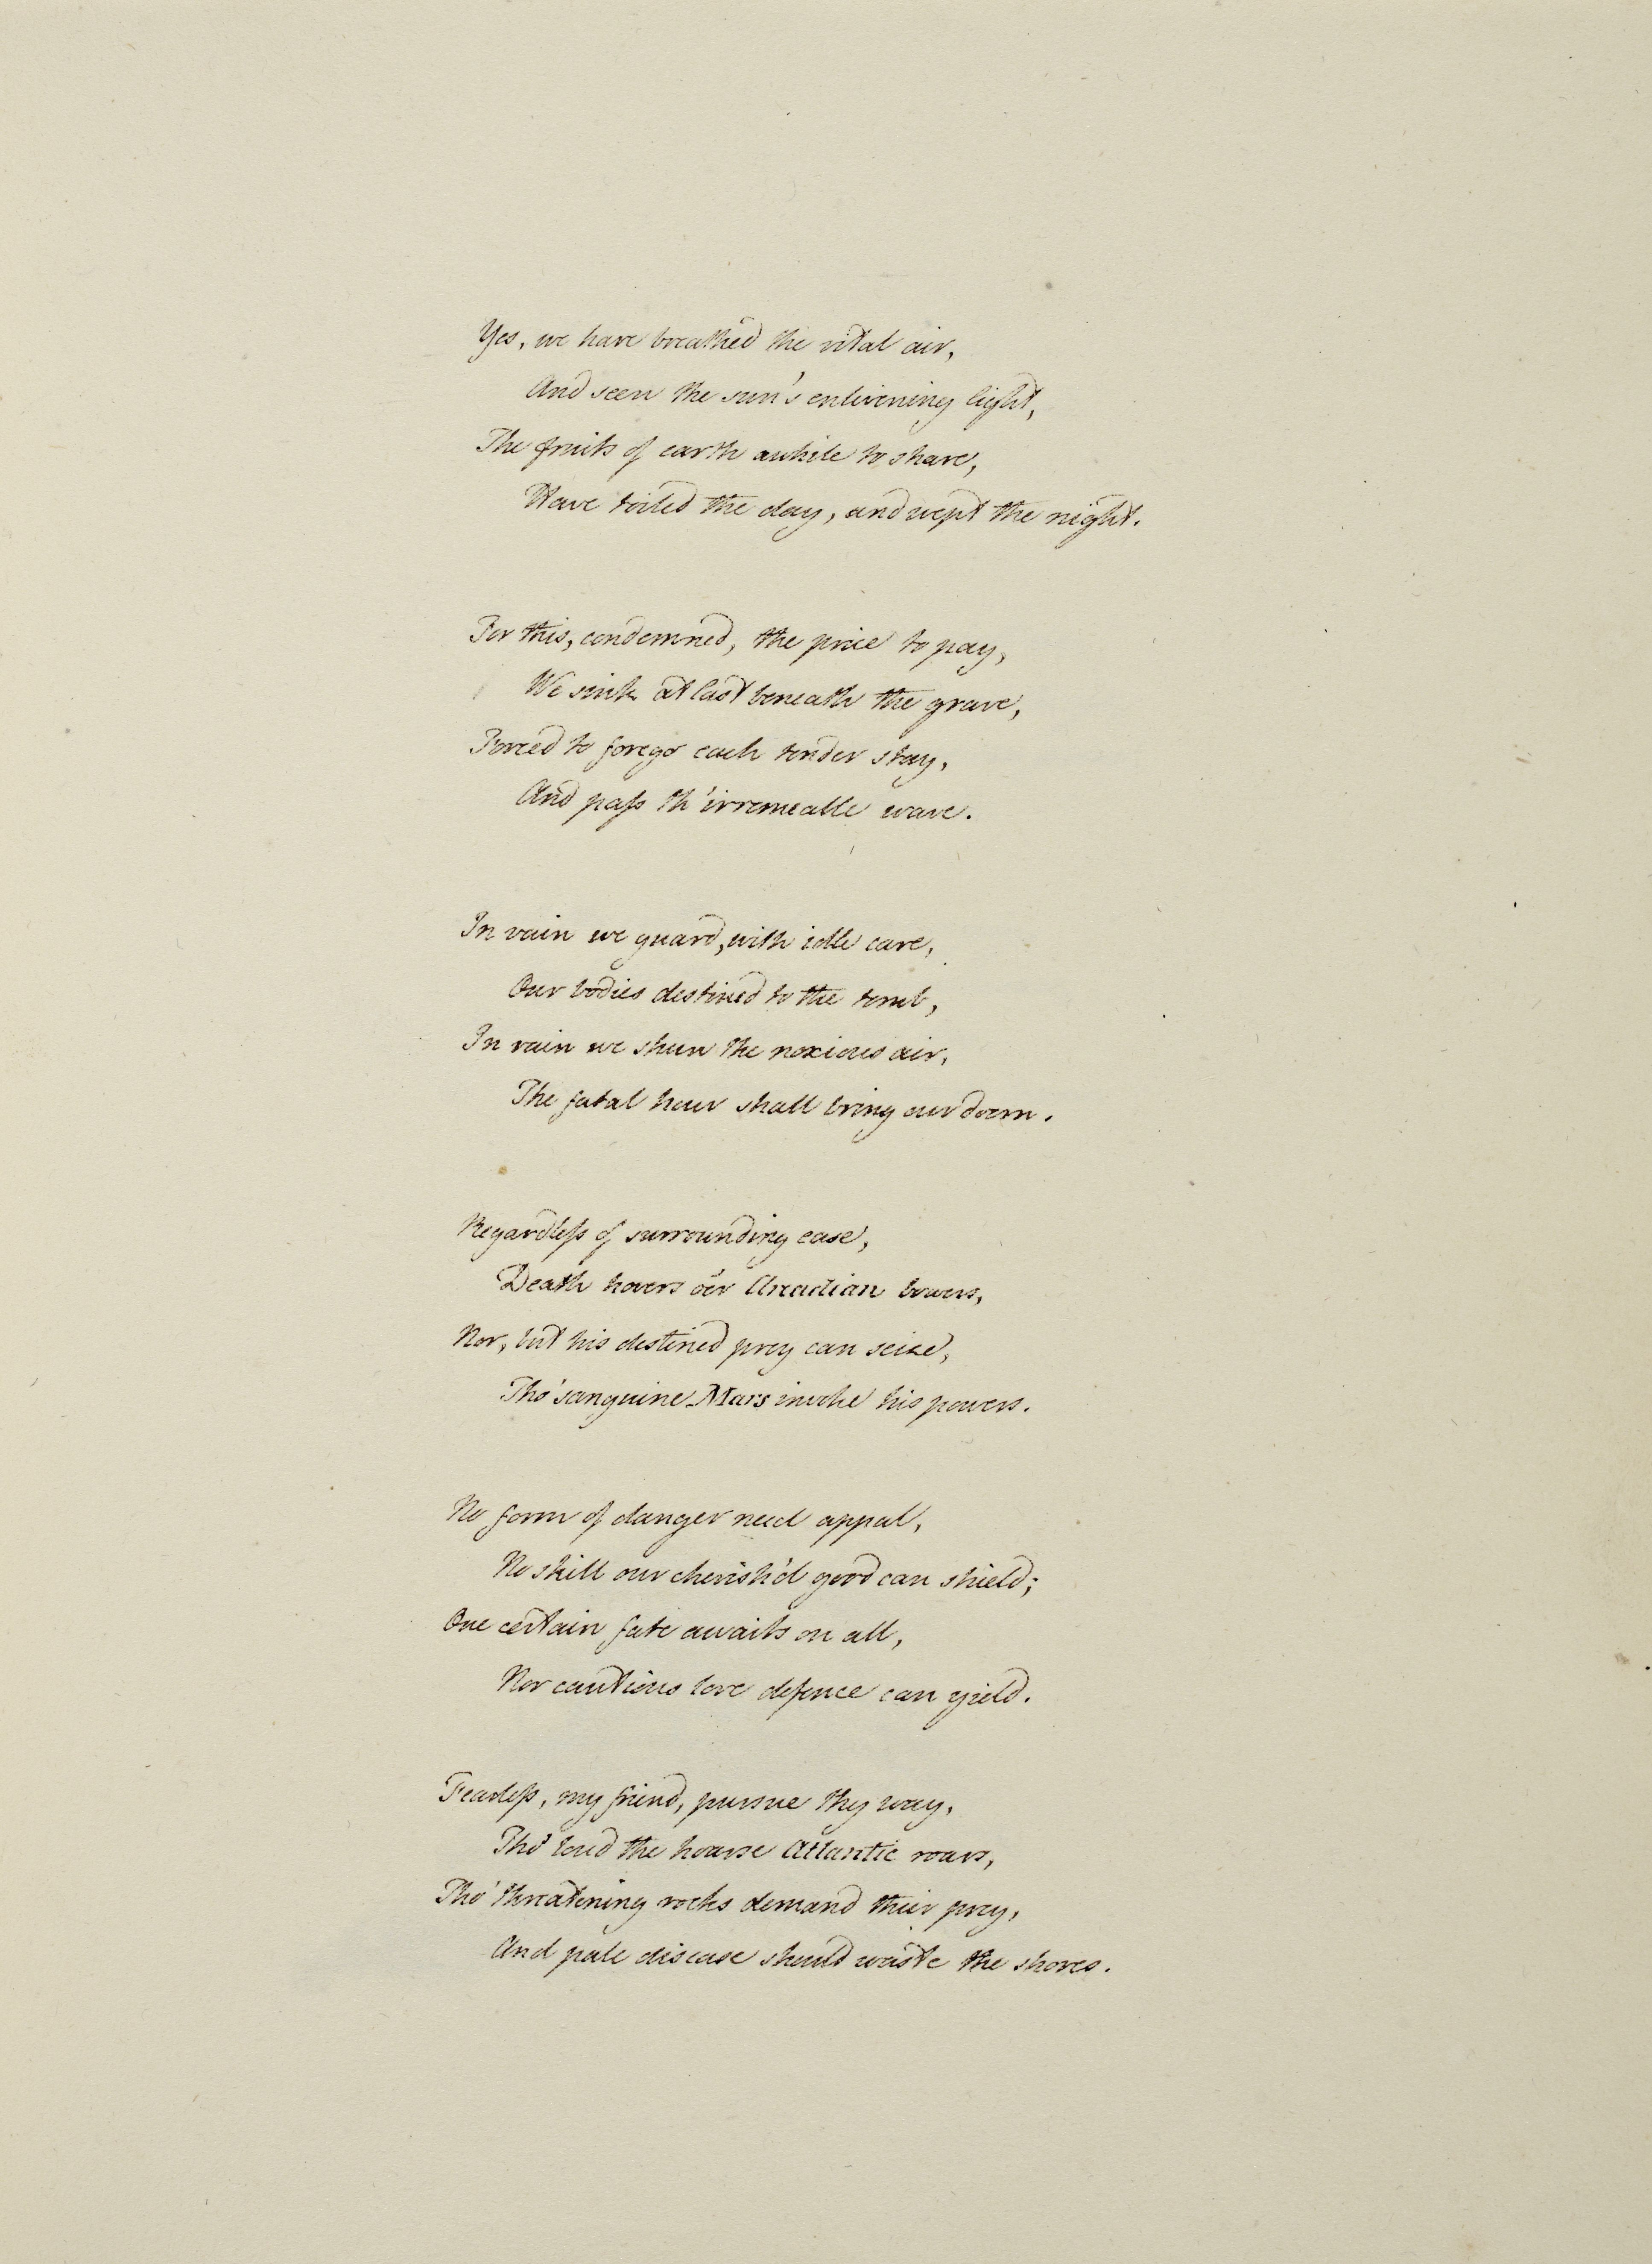 Yes, we have breathed the vital air,
And seen the sun's enlivening light,
The fruits of earth awhile to share,
Have toiled the day, and wept the night.
For this, condemned, the price to pay,
We sink at last beneath the grave,
Forced to forego each tender stay,
And pass th'irremeable wave.
In vain we guard, with idle care,
Our bodies destined to the tomb,
In vain we shun the noxious air,
The fatal hour shall bring our doom.
Regardless of surrounding ease,
Death hovers o'er Arcadian bowers,
Nor, but his destined prey can seize,
Tho' sanguine Mars invoke his powers.
No form of danger need appal,
No skill our cherish'd good can shield;
One certain fate awaits on all,
Nor cautious love defence can yield.
Fearless, my friend, pursue thy way,
Tho' loud the hoarse Atlantic roars,
Tho' threatening rocks demand their prey,
And pale disease should waste the shores.